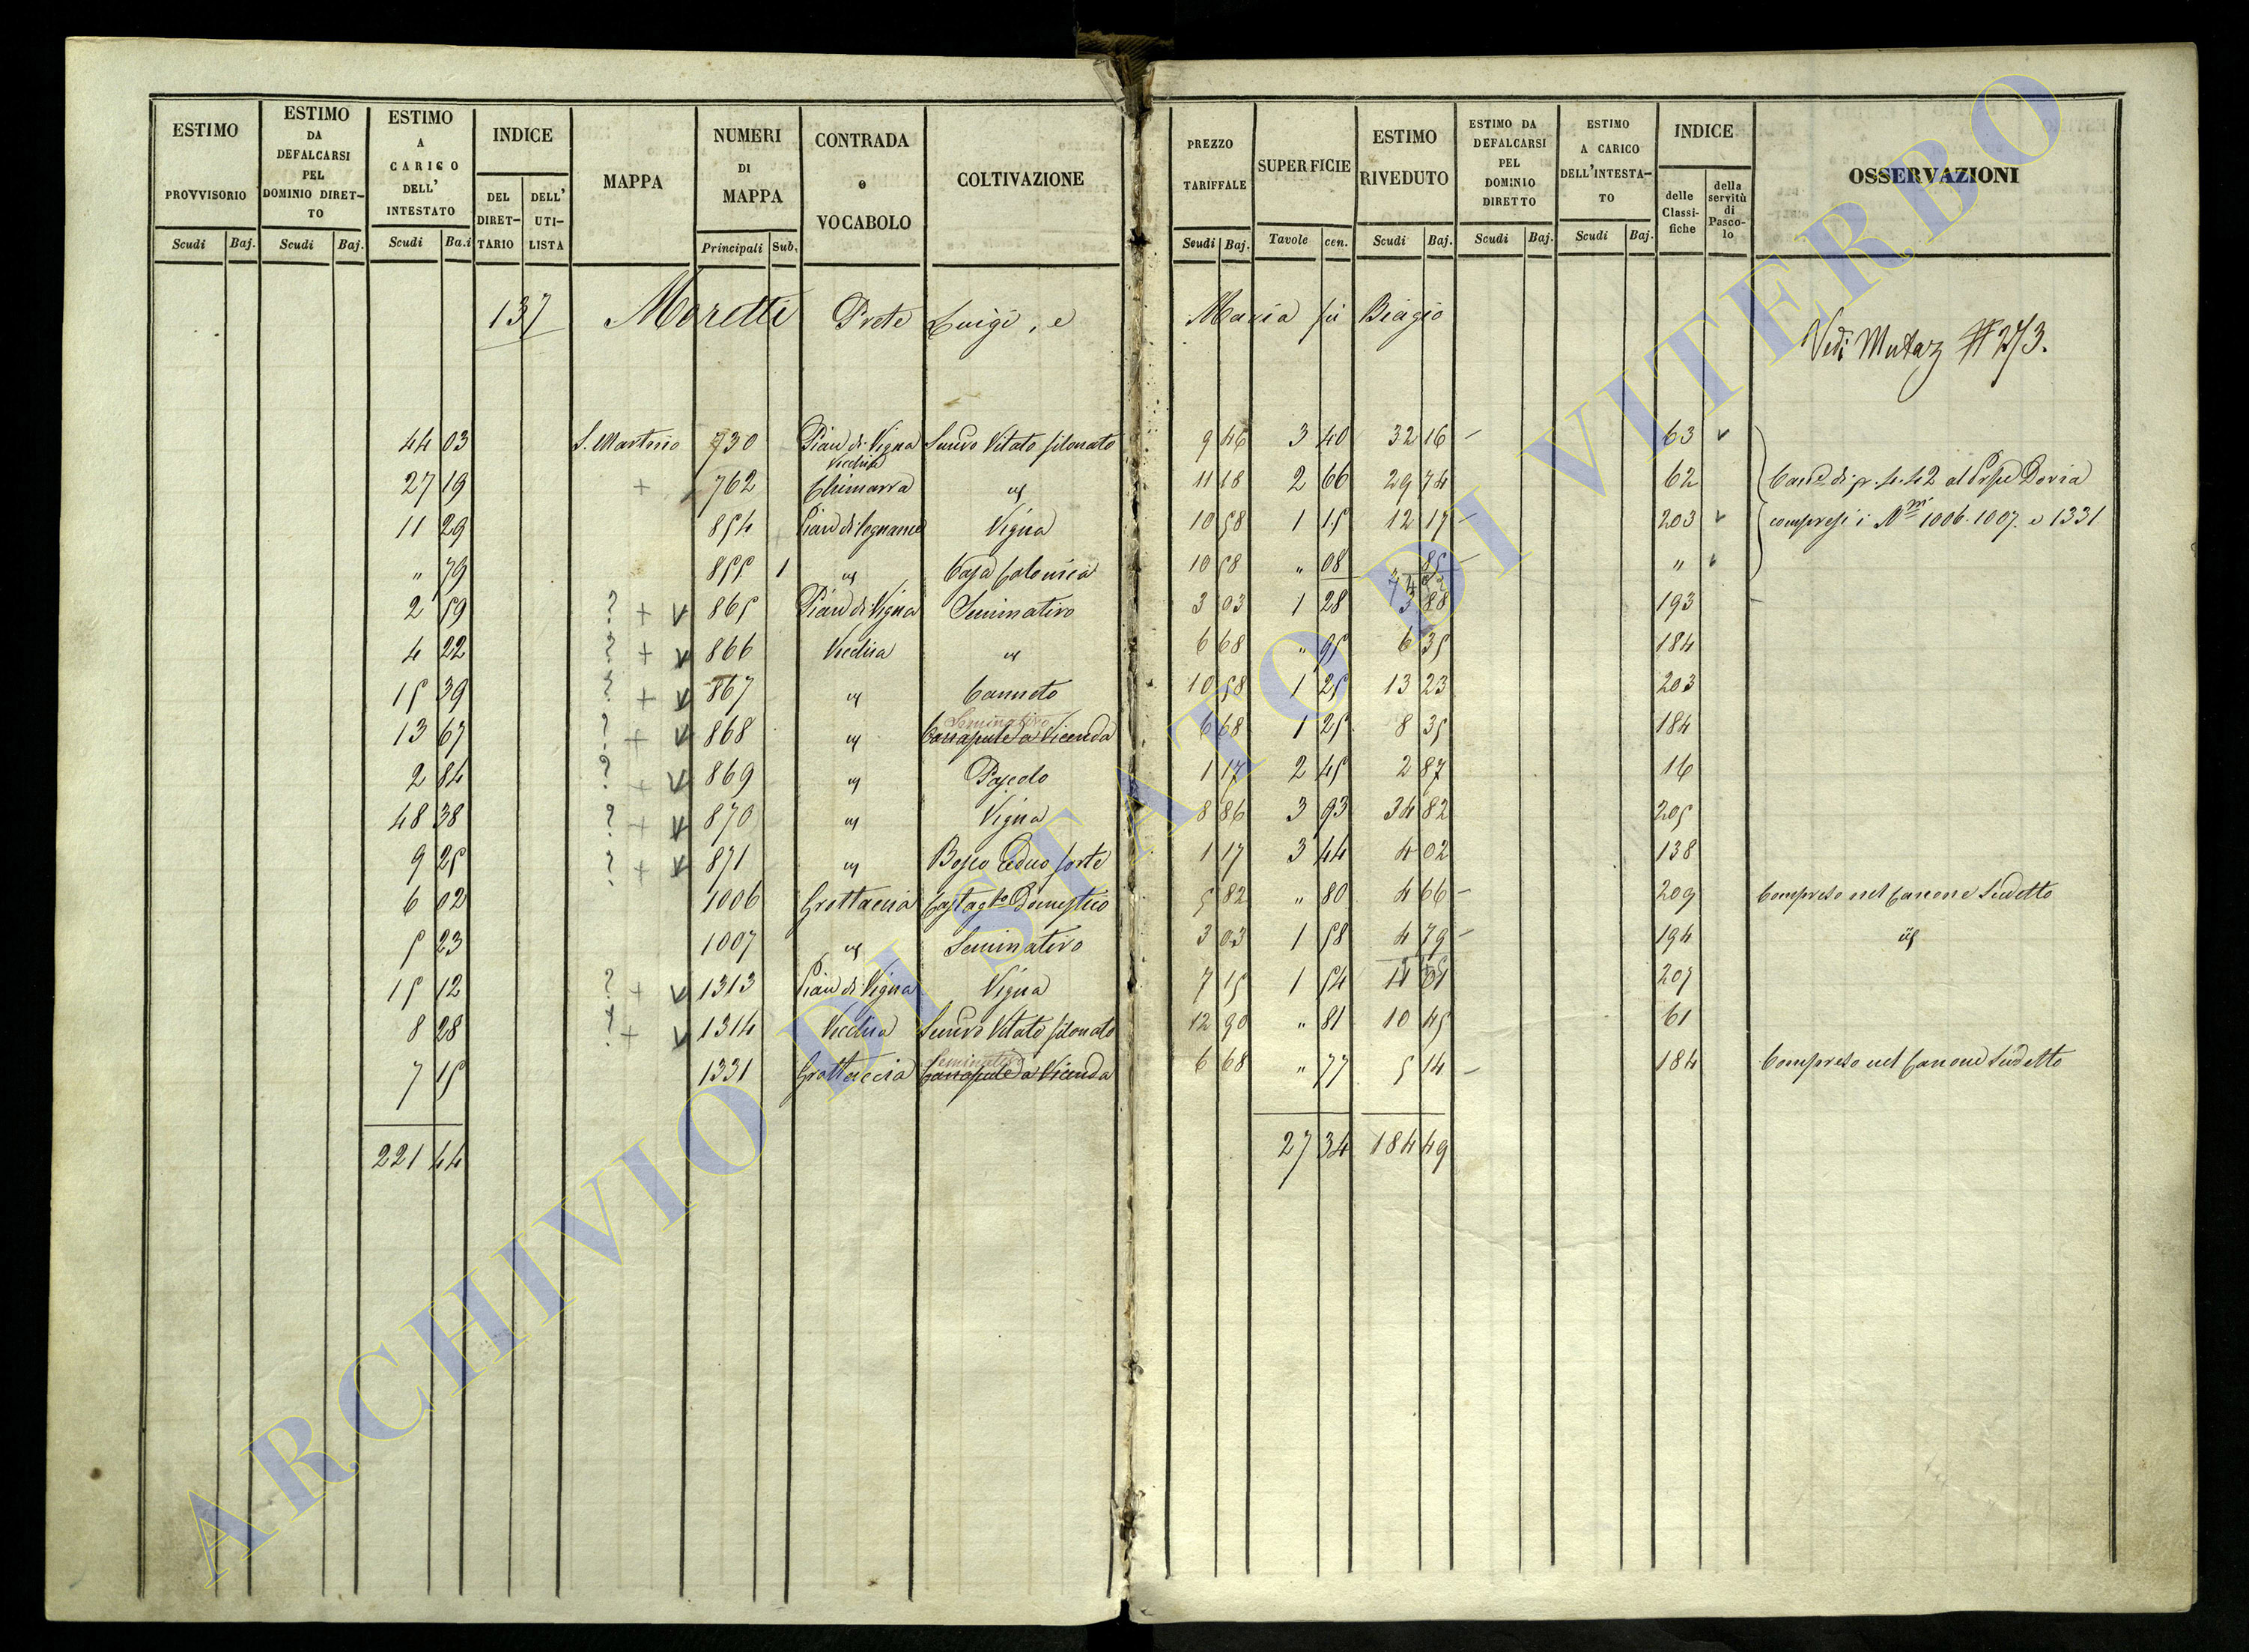 ESTIMO PROVVISORIO
ESTIMO DA DEFALCARSI PEL DOMINIO DIRET-TO
ESTIMO A CARICO DELL' INTESTATO
INDICE
DEL DIRET-TARIO
DELL' UTI-LISTA
MAPPA
NUMERI DI MAPPA
CONTRADA e VOCABOLO
COLTIVAZIONE
PREZZO TARIFFALE
SUPERFICIE
ESTIMO RIVEDUTO
ESTIMO DA DEFALCARSI PEL DOMINIO DIRETTO
ESTIMO A CARICO DELL'INTESTA-TO
INDICE
delle Classi-fiche
della servitù di Pasco-lo
OSSERVAZIONI
Scudi Baj. Scudi Baj. Scudi Ba.i Principali Sub. Scudi Baj. Tavole cen. Scudi Baj. Scudi Baj. Scudi Baj.
137 Moretti Prete Luigi, e Maria fù Biagio
Vedi Mutaz # 273.
44 03 S. Martino 730 Pian di Vigna Vecchia Vitato filonato 9 46 3 40 32 16 – 63
27 19 + 762 Chimarra 11 18 2 66 29 74 62 di p. 4.42 al Doria
11 29 854 Vigna 10 58 1 15 12 17 – 203 compresi i Nri 1006. 1007. e 1331
" 79 855 1 Casa Colonica 10 58 " 08 85 – "
74 92
2 59 ? + V 865 Pian di Vigna Seminativo 3 03 1 28 3 88 193 –
4 22 ? + V 866 Vecchia 6 68 " 95 6 35 184
15 39 ? + V 867 Canneto 10 58 1 25 13 23 203
Seminativo
13 67 ? + V 868 Canapule a Vicenda 6 68 1 25 8 35 184
2 84 ? + V 869 Pascolo 1 17 2 45 2 87 16
48 38 ? + V 870 Vigna 8 86 3 93 34 82 205
9 25 ? + V 871 Bosco Ceduo forte 1 17 3 44 4 02 138
6 02 1006 Grottaccia Domestico 5 82 " 80 4 66 – 209 Compreso nel Canone Sudetto
5 23 1007 Seminativo 3 03 1 58 4 79 – 194
15 12 ? + V 1313 Pian di Vigna Vigna 7 15 1 54 11 01 207
8 28 ? + V 1314 Vecchia Vitato filonato 12 90 " 81 10 45 61
Seminativo
7 15 1331 Grottaccia Canapule a Vicenda 6 68 " 77 5 14 – 184 Compreso nel Canone Sudetto
221 44 27 34 184 49
ARCHIVIO DI STATO DI VITERBO